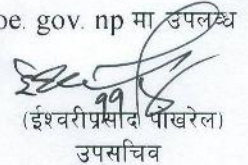 oe. gov. np मा उपलब्ध
(ईश्वरीप्रसाद पोखरेल)
उपसचिव